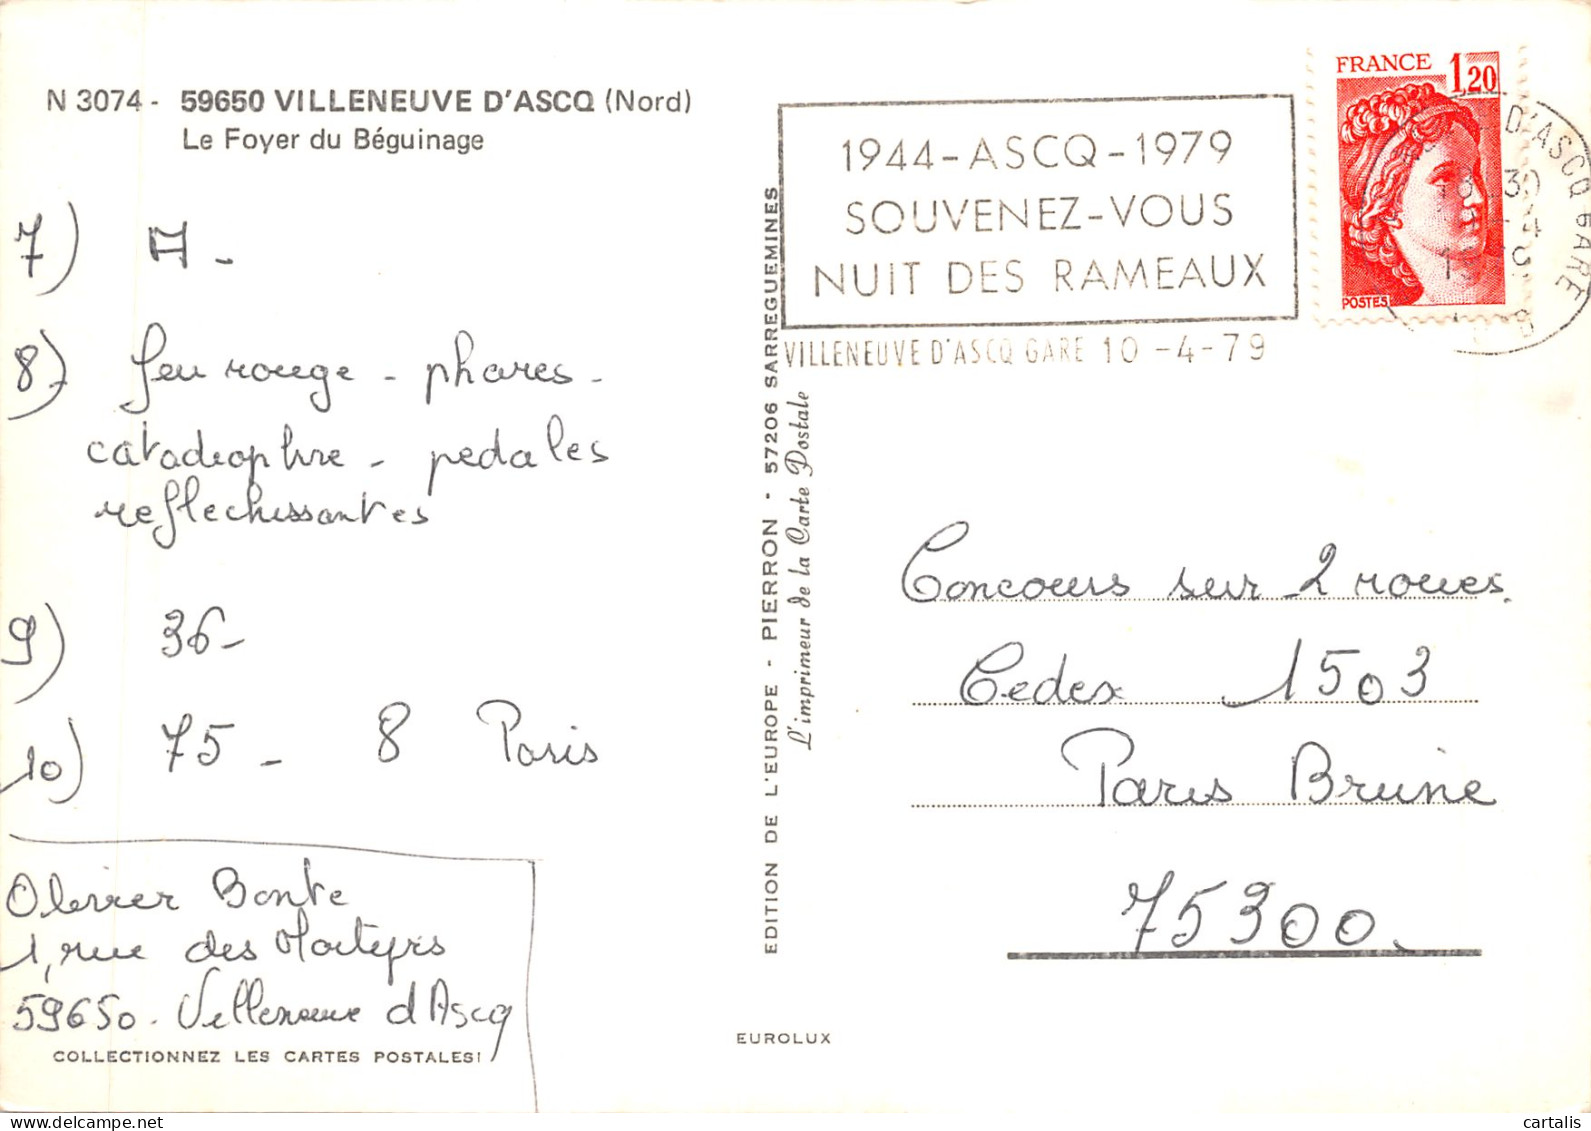 N 3074 - 59650 VILLENEUVE D'ASCQ (Nord)
Le Foyer du Béguinage
7) A -
8) feu rouge - phares -
catadiophre - pedales
reflechissantes
9) 36 -
10) 75 - 8 Paris
Olivier Bonte
1, rue des Martyrs
59650 - Villeneuve d'Ascq
COLLECTIONNEZ LES CARTES POSTALES!
EDITION DE L'EUROPE - PIERRON - 57206 SARREGUEMINES
L'imprimeur de la Carte Postale
EUROLUX
1944-ASCQ-1979
SOUVENEZ-VOUS
NUIT DES RAMEAUX
VILLENEUVE D'ASCQ GARE 10-4-79
FRANCE 1,20
POSTES
D'ASCQ GARE
Concours sur 2 roues.
Cedex 1503
Paris Brune
75300
cartalis.com